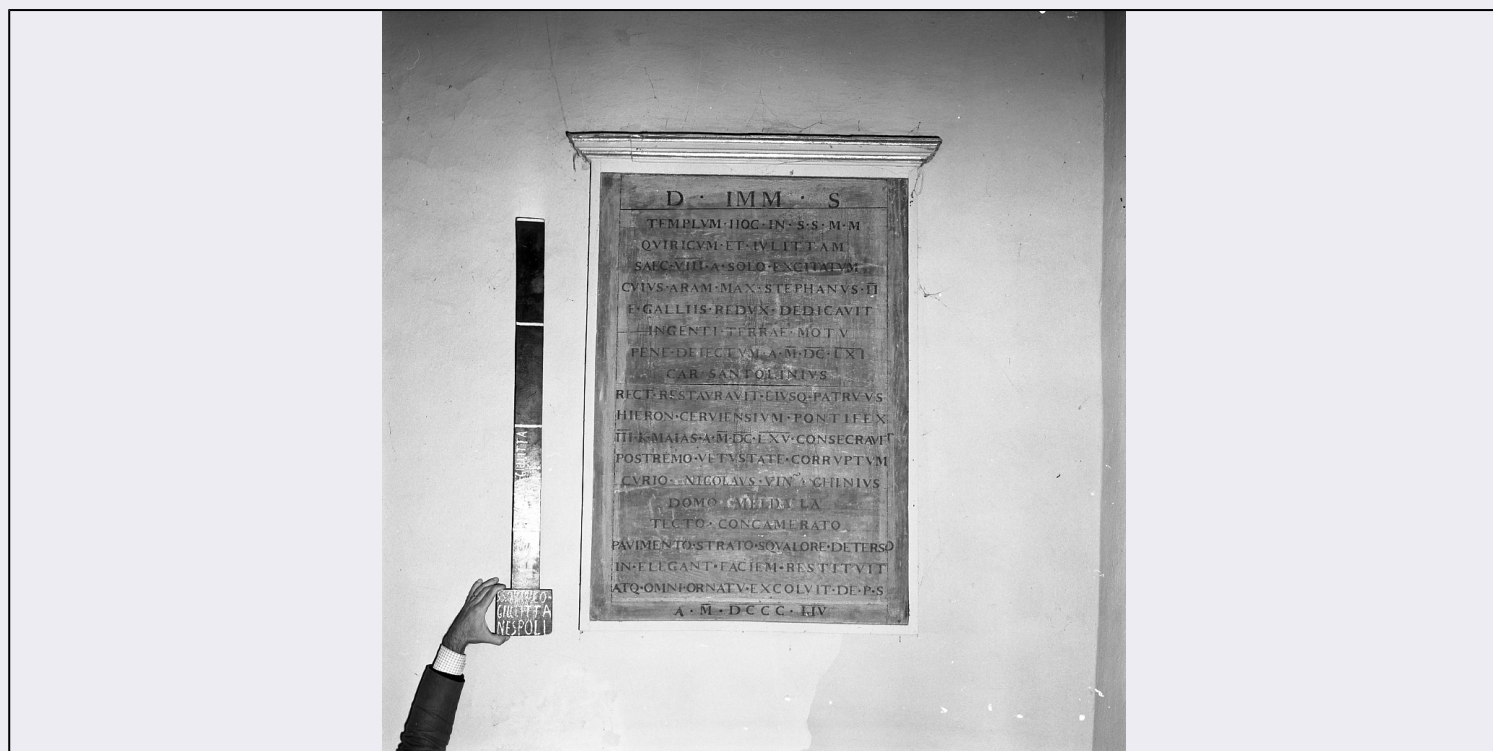 D · IMM · S
TEMPLVM·HOC·IN·S·S·M·M
QVIRICVM·ET·IVLITTAM
SAEC·VIII·A·SOLO·EXCITATVM
CVIVS·ARAM·MAX·STEPHANVS·II
E·GALLIIS·REDVX·DEDICAVIT
INGENTI·TERRAE·MOTV
PENE·DEIECTVM·A·M·DC·LXI
CAR·SANTOLINIVS
RECT·RESTAVRAVIT·EIVSQ·PATRVVS
HIERON·CERVIENSIVM·PONTIFEX
III·K·MAIAS·A·M·DC·LXV·CONSECRAVIT
POSTREMO·VETVSTATE·CORRVPTVM
CVRIO·NICOLAVS·
DOMO·MELDVLA
TECTO·CONCAMERATO
PAVIMENTO·STRATO·SQVALORE·DETERSO
IN·ELEGANT·FACIEM·RESTITVIT
ATQ·OMNI·ORNATV·EXCOLVIT·DE·P·S
A·M·DCCC·LIV
GIULITTA
NESPOLI